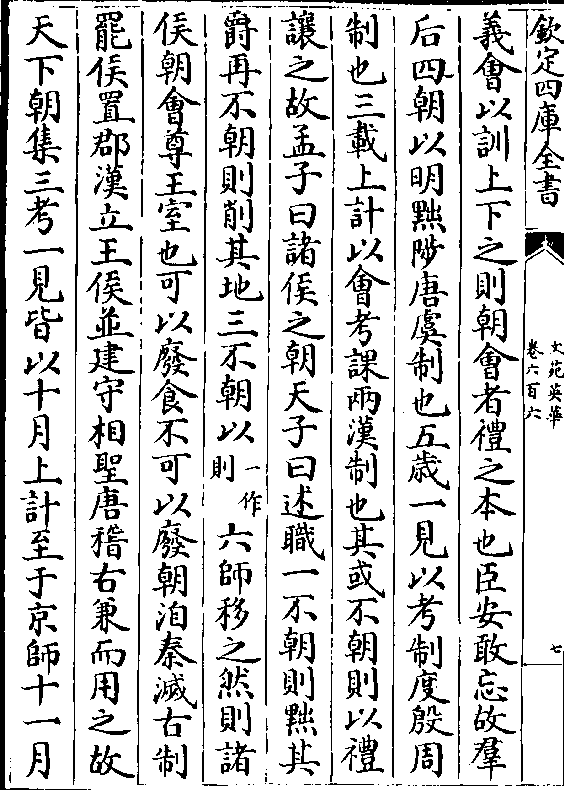 欽定四庫全書
文苑英華
卷六百六
七
義會以訓上下之則朝會者禮之本也臣安敢忘故羣
后四朝以明黜陟唐虞制也五歲一見以考制度殷周
制也三載上計以會考課兩漢制也其或不朝則以禮
讓之故孟子曰諸侯之朝天子曰述職一不朝則黜其
爵再不朝則削其地三不朝以一作則六師移之然則諸
侯朝會尊王室也可以廢食不可以廢朝洎秦滅古制
罷侯置郡漢立王侯並建守相聖唐稽古兼而用之故
天下朝集三考一見皆以十月上計至于京師十一月